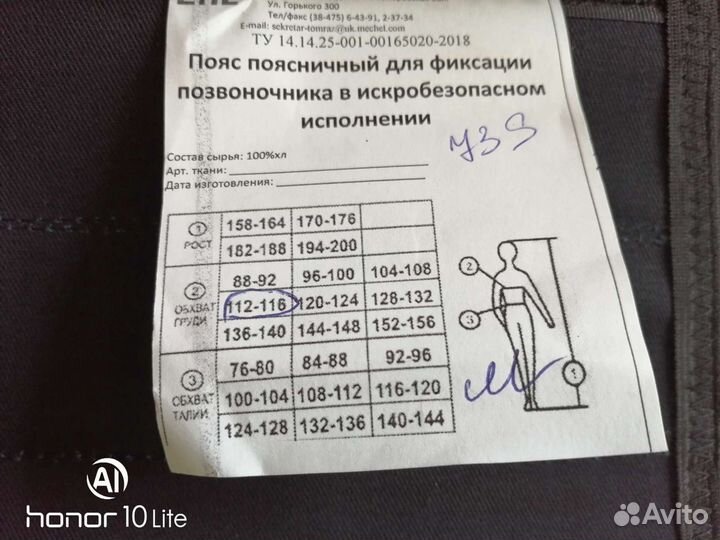 Ул. Горького 300
Тел/факс (38-475) 6-43-91, 2-37-34
E-mail: sekretar-tomraz@uk.mechel.com
ТУ 14.14.25-001-00165020-2018
Пояс поясничный для фиксации
позвоночника в искробезопасном
исполнении
Состав сырья: 100%хл
Арт. ткани:
Дата изготовления:
1 РОСТ
158-164 170-176
182-188 194-200
2 ОБХВАТ ГРУДИ
88-92 96-100 104-108
112-116 120-124 128-132
136-140 144-148 152-156
3 ОБХВАТ ТАЛИИ
76-80 84-88 92-96
100-104 108-112 116-120
124-128 132-136 140-144
2
3
1
AI
honor 10 Lite
Avito